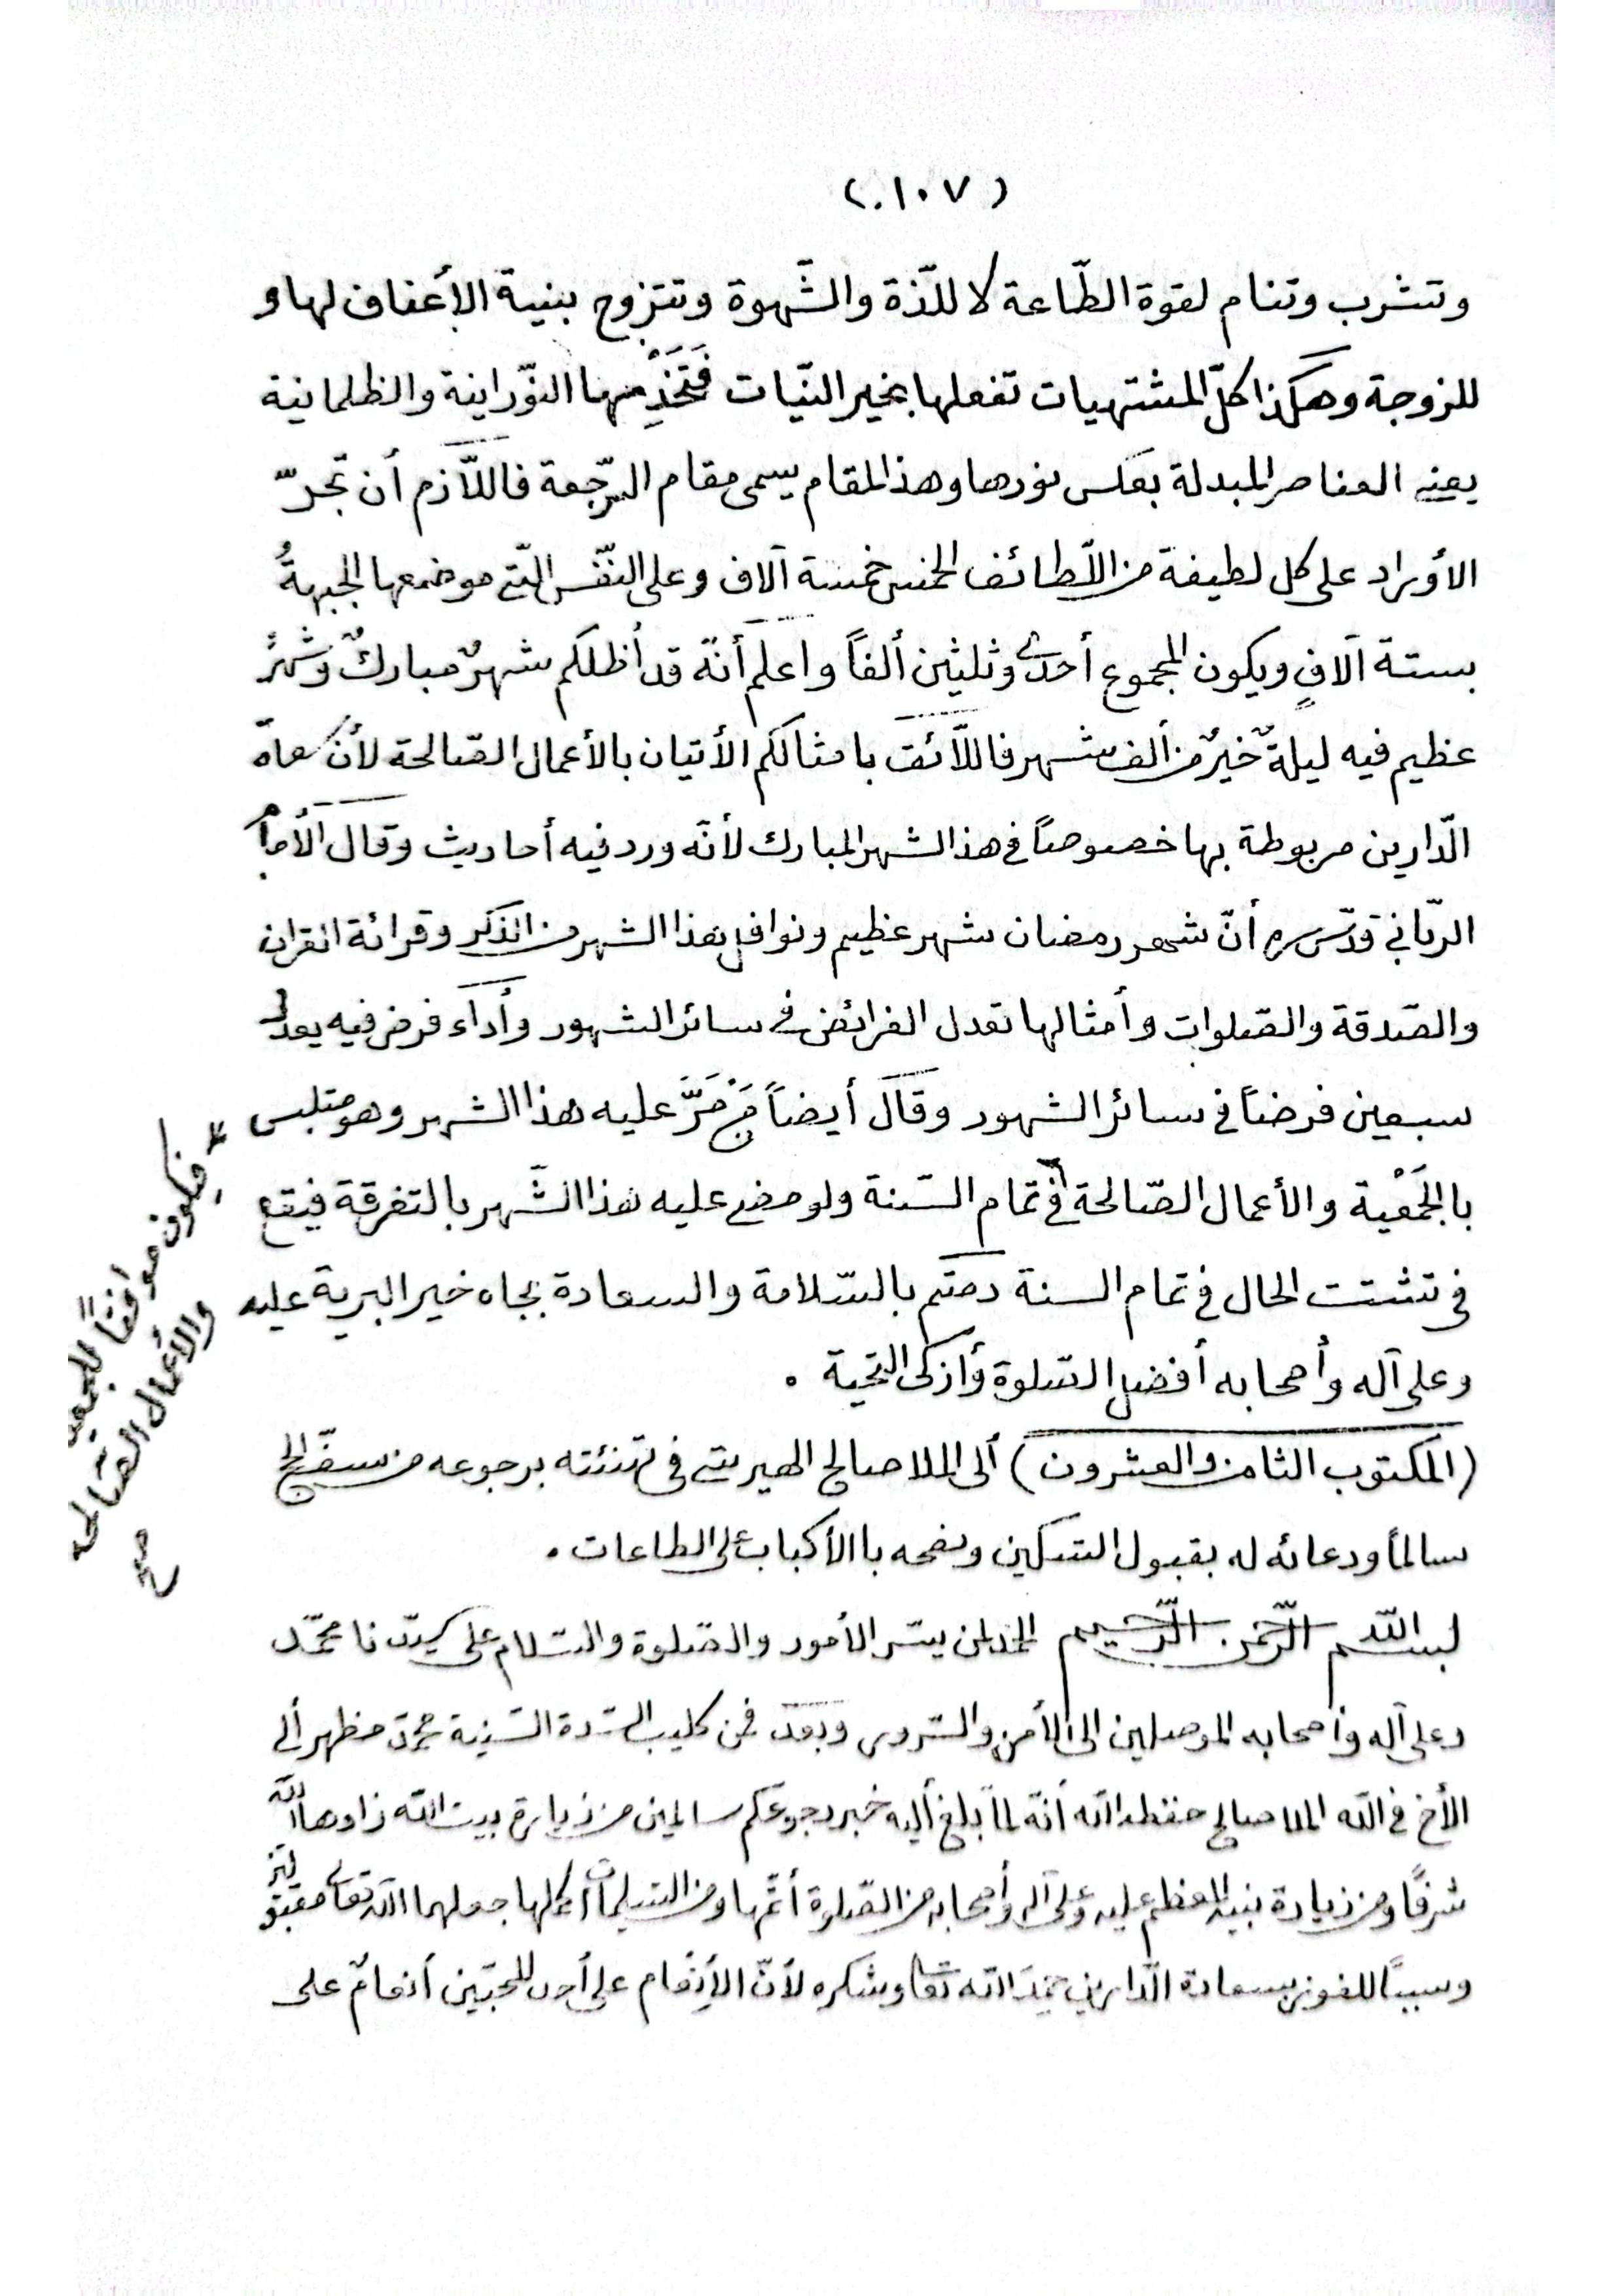 (١٠٧)
وتشرب وتنام لقوة الطّاعة لا للذّة والشّهوة وتتزوج بنية الأعفاف لها و
للزوجة وهكذا كلّ المشتهيات تفعلها بخير النيّات فَتَخَذِ منها النوّراينة والظلمانية
يعنى العناصر المبدلة بعكس نورها وهذ المقام يسمى مقام الرّجعة فاللاّزم أن تجرّ
الأوراد على كل لطيفة من اللّطائف الخمس خمسة آلاف وعلى النّفس الّتي موضعها الجبهةُ
بستة آلافٍ ويكون المجموع أحدى وثلثين ألفاً واعلم أنّه قد أظلكم شهرٌ مباركٌ وشهرٌ
عظيم فيه ليلةٌ خيرٌ من ألف شهر فاللّائق بامثالكم الأتيان بالأعمال الصّالحة لأن سعادة
الّدارين مربوطة بها خصوصاً في هذ الشهر المبارك لأنّه ورد فيه أحاديث وقال الأمام
الربّاني قدّس سره أنّ شهر رمضان شهر عظيم ونوافل هذا الشهر من الذكر وقرائة القران
والصّدقة والصّلوات وأمثالها تعدل الفرائض في سائر الشهور وأداء فرض فيه يعدل
سبعين فرضاً في سائر الشهور وقال أيضاً مَنْ مَرَّ عليه هذا الشهر وهو متلبس
بالجَمْعية والأعمال الصّالحة في تمام السّنة ولو مضى عليه هذا الشّهر بالتفرقة فيقع
في تشتت الحال في تمام السنة دمتم بالسّلامة والسعادة بجاه خير البرية عليه
وعلى آله وأصحابه أفضل الصّلوة وأزكى التّحية .
(المكتوب الثامن والعشرون) ألى الملا صالح الهيرتى في تهنئته برجوعه من سفر الحج
سالماً ودعائه له بقبول النسكين ونصحه باالأكباب على الطاعات .
بسم اللّه الرّحمن الرّحيم الحمد لمن ييسّر الأمور والصّلوة والسّلام على سيّدنا محمّد
وعلى آله وأصحابه الموصلين الى الأمن والسّرور وبعد فمن كليب السّدة السّنية محمّد مظهر ألى
الأخ في اللّه الملا صالح حفظه اللّه أنّه لمّا بلغ أليه خبر رجوعكم سالمين من زيارة بيت اللّه زادها اللّه
شرفًا ومن زيادة نبيه المعظم عليه وعلى آله وأصحابه من الصّلوة أتمّها ومن التسليمات أكملها جعلهما اللّه تعالى مقبولتين
وسببًا للفوز بسعادة الدّارين حمِدَ اللّه تعالى وشكره لأنّ الأِنعام على أحد المحبّين أنعامٌ على
فيكون موافقاً للجمعية
والأعمال الصّالحة
صح